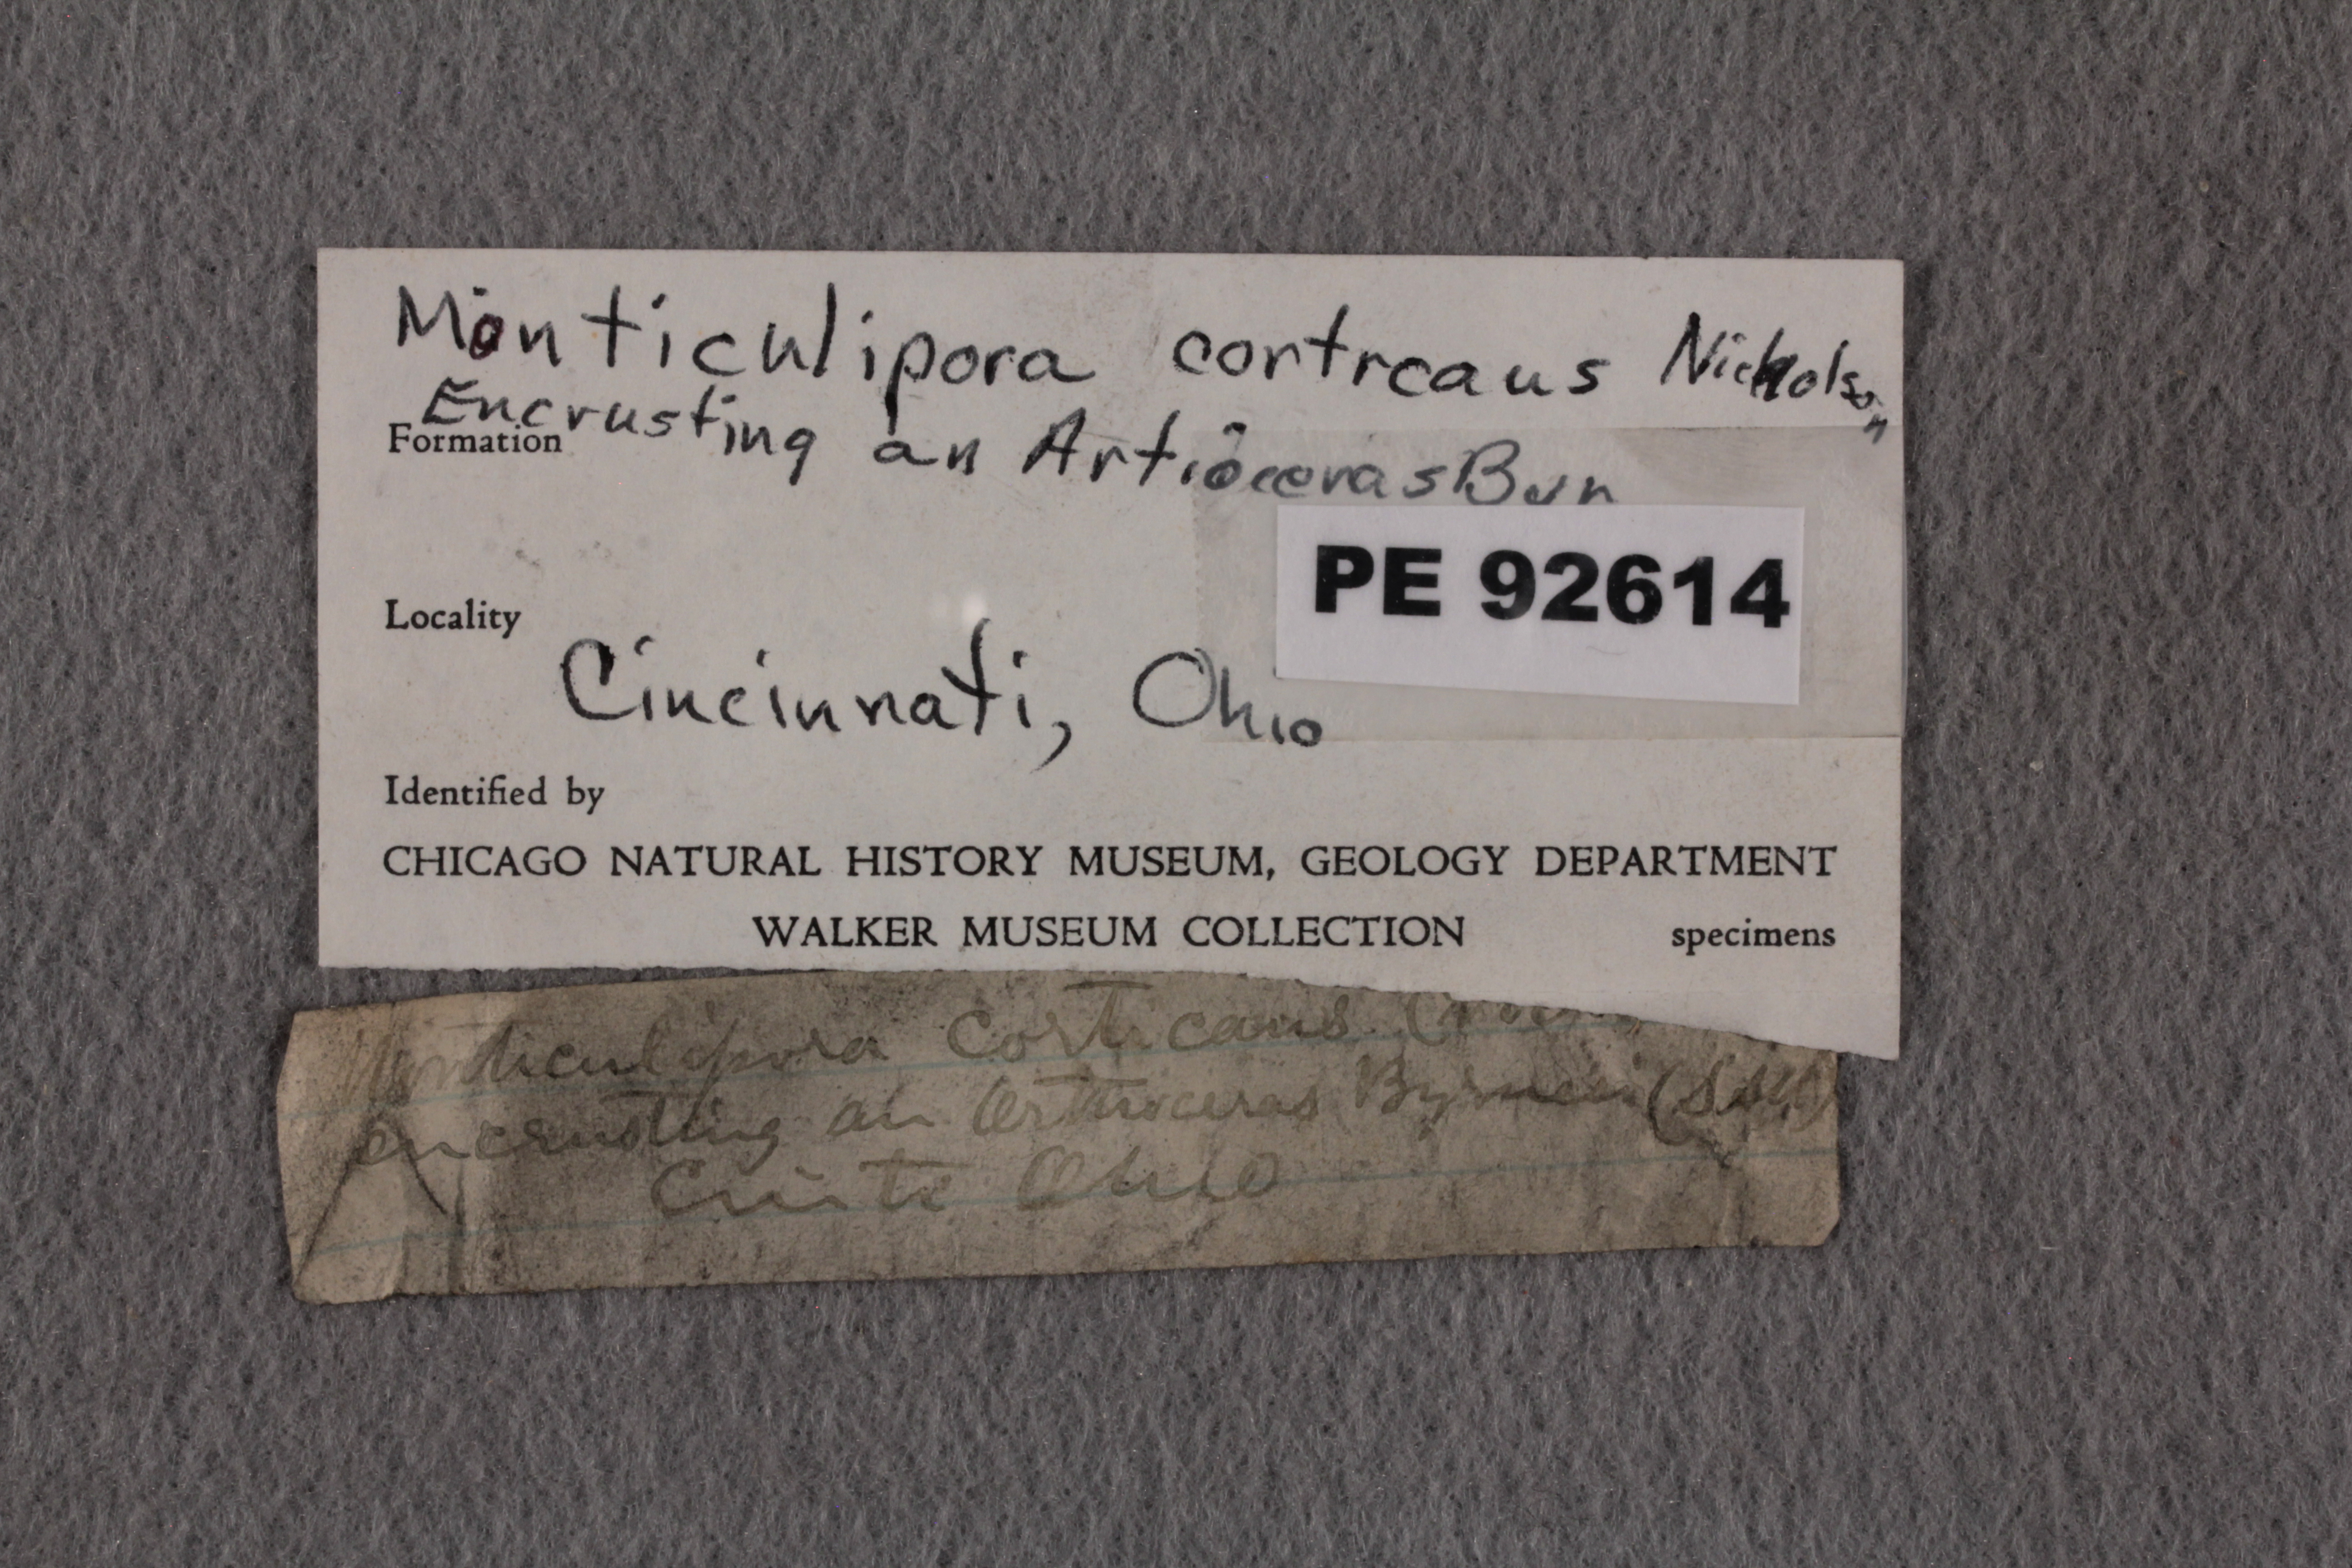 Monticulipora cortrcaus Nicholson
Encrusting an Artioceras Byn
Formation
PE 92614
Locality
Cincinnati, Ohio
Identified by
CHICAGO NATURAL HISTORY MUSEUM, GEOLOGY DEPARTMENT
WALKER MUSEUM COLLECTION specimens
Monticulipora Corticans
encrusting an Orthoceras Byrnesi
Ohio